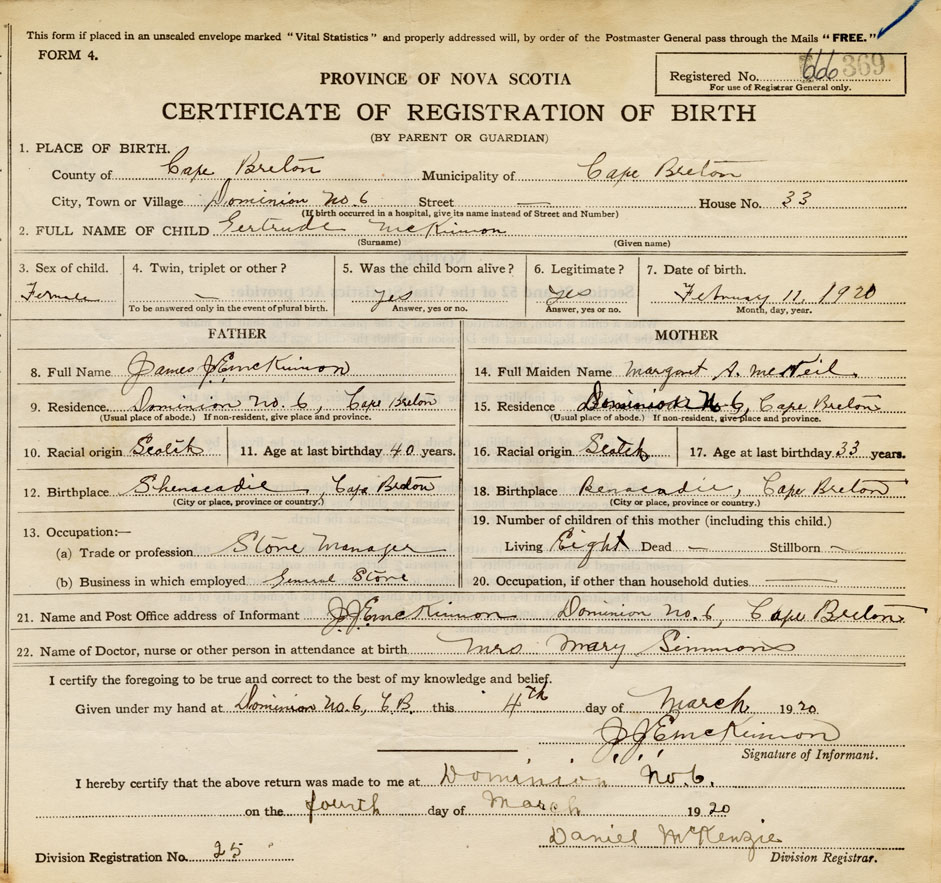 This form if placed in an unsealed envelope marked "Vital Statistics" and properly addressed will, by order of the Postmaster General pass through the Mails "FREE."
FORM 4.
PROVINCE OF NOVA SCOTIA
Registered No. 666 369
For use of Registrar General only.
CERTIFICATE OF REGISTRATION OF BIRTH
(BY PARENT OR GUARDIAN)
1. PLACE OF BIRTH.
County of Cape Breton Municipality of Cape Breton
City, Town or Village Dominion No. 6 Street — House No. 33
(If birth occurred in a hospital, give its name instead of Street and Number)
2. FULL NAME OF CHILD Gertrude McKinnon
(Surname) (Given name)
3. Sex of child. 4. Twin, triplet or other? 5. Was the child born alive? 6. Legitimate? 7. Date of birth.
Female — yes yes February 11, 1920
To be answered only in the event of plural birth. Answer, yes or no. Answer, yes or no. Month, day, year.
FATHER MOTHER
8. Full Name James J. E. McKinnon 14. Full Maiden Name Margaret A. McNeil
9. Residence. Dominion No. 6, Cape Breton 15. Residence Dominion No 6, Cape Breton
(Usual place of abode.) If non-resident, give place and province. (Usual place of abode.) If non-resident, give place and province.
10. Racial origin Scotch 11. Age at last birthday 40 years. 16. Racial origin Scotch 17. Age at last birthday 33 years.
12. Birthplace Shenacadie, Cape Breton 18. Birthplace Benacadie, Cape Breton
(City or place, province or country.) (City or place, province or country.)
13. Occupation:— 19. Number of children of this mother (including this child.)
(a) Trade or profession Store Manager Living Eight Dead — Stillborn —
(b) Business in which employed General Store 20. Occupation, if other than household duties —
21. Name and Post Office address of Informant J. J. E. McKinnon Dominion No. 6, Cape Breton
22. Name of Doctor, nurse or other person in attendance at birth Mrs Mary Simmons
I certify the foregoing to be true and correct to the best of my knowledge and belief.
Given under my hand at Dominion No. 6, C.B. this 4th day of March 1920.
J. J. E. McKinnon
Signature of Informant.
I hereby certify that the above return was made to me at Dominion No 6.
on the fourth day of March 1920
Daniel McKenzie
Division Registration No. 25 Division Registrar.